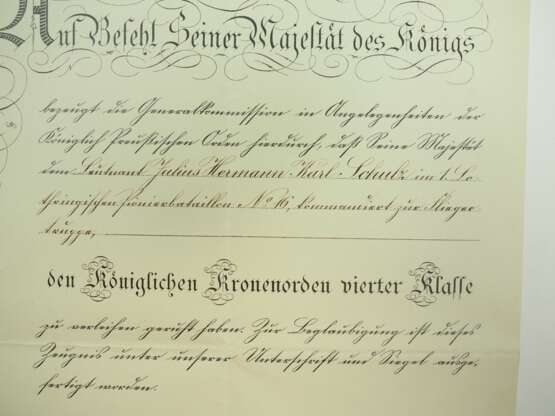 Auf Befehl Seiner Majestät des Königs
bezeugt die Generalkommission in Angelegenheiten der
Königlich Preußischen Orden hierdurch, daß Seine Majestät
dem Leutnant Julius Hermann Karl Schulz im 1. Lo-
thringischen Pionierbataillon No 16, kommandiert zur Flieger-
truppe,
den Königlichen Kronenorden vierter Klasse
zu verleihen geruht haben. Zur Beglaubigung ist dieses
Zeugnis unter unserer Unterschrift und Siegel ausge-
fertigt worden.